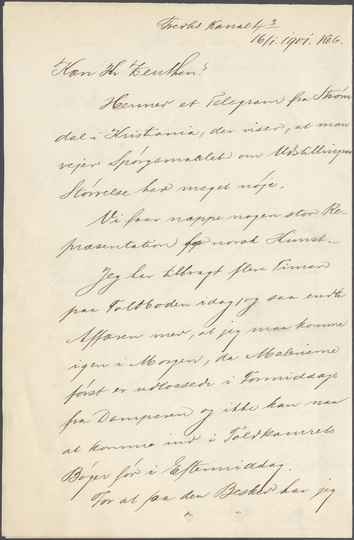 Frederiks Kanal 3
16/1. 1901. Kbh.
Kære Hr Zeuthen!
Hermed et Telegram fra Strøm
dal i Kristiania, der viser, at man
vejer Spørgsmaalet om Udstillingens
Størrelse her meget nøje.
Vi faar næppe nogen stor Re-
præsentation af norsk Kunst.
Jeg har tilbragt flere Timer
paa Toldboden idag, og saa endte
Affæren med, at jeg maa komme
igen i Morgen, da Malerierne
først er udlossede i Formiddags
fra Damperen og ikke kan naa
at komme ind i Toldkamrets
Bøger før i Eftermiddag.
For at faa den Besked har jeg